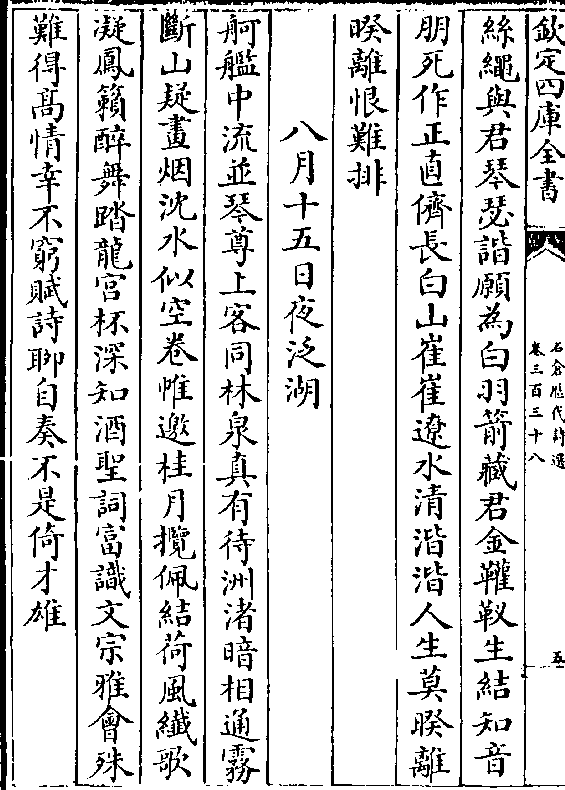 欽定四庫全書
石倉歷代詩選
卷三百三十八
五
絲繩與君琴瑟諧願為白羽箭藏君金鞾靫生結知音
朋死作正直儕長白山崔崔遼水清湝湝人生莫暌離
暌離恨難排
八月十五日夜泛湖
舸艦中流並琴尊上客同林泉真有待洲渚暗相通霧
斷山疑畫烟沈水似空卷帷邀桂月攬佩結荷風纎歌
凝鳳籟醉舞踏龍宮杯深知酒聖詞富識文宗雅會殊
難得髙情幸不窮賦詩聊自奏不是倚才雄